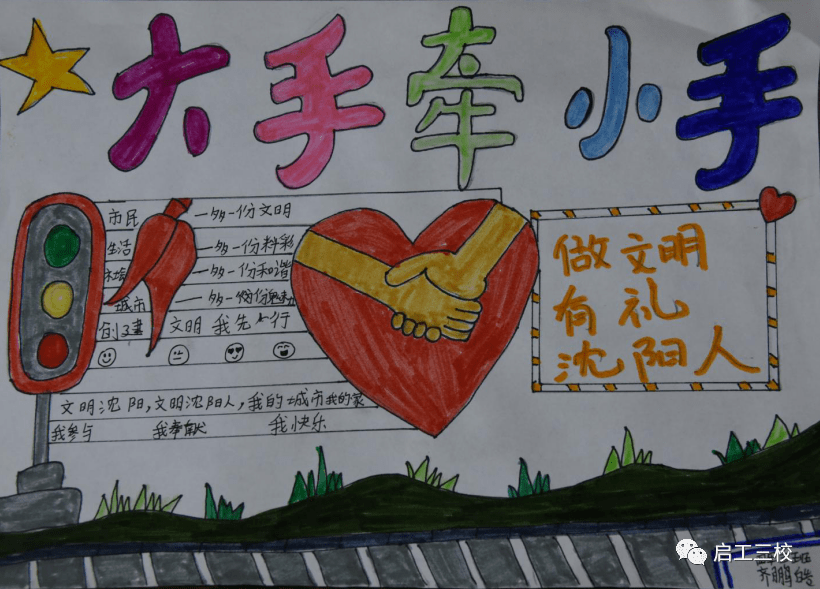 大手牵小手
市民 一多一份文明
生活 一多一份料彩
一多一份和谐
城市 一多一份
文明 我先行
文明沈阳,文明沈阳人,我的城市我的家
我参与 我奉献 我快乐
做文明
有礼
沈阳人
启工三校
齐鹏皓